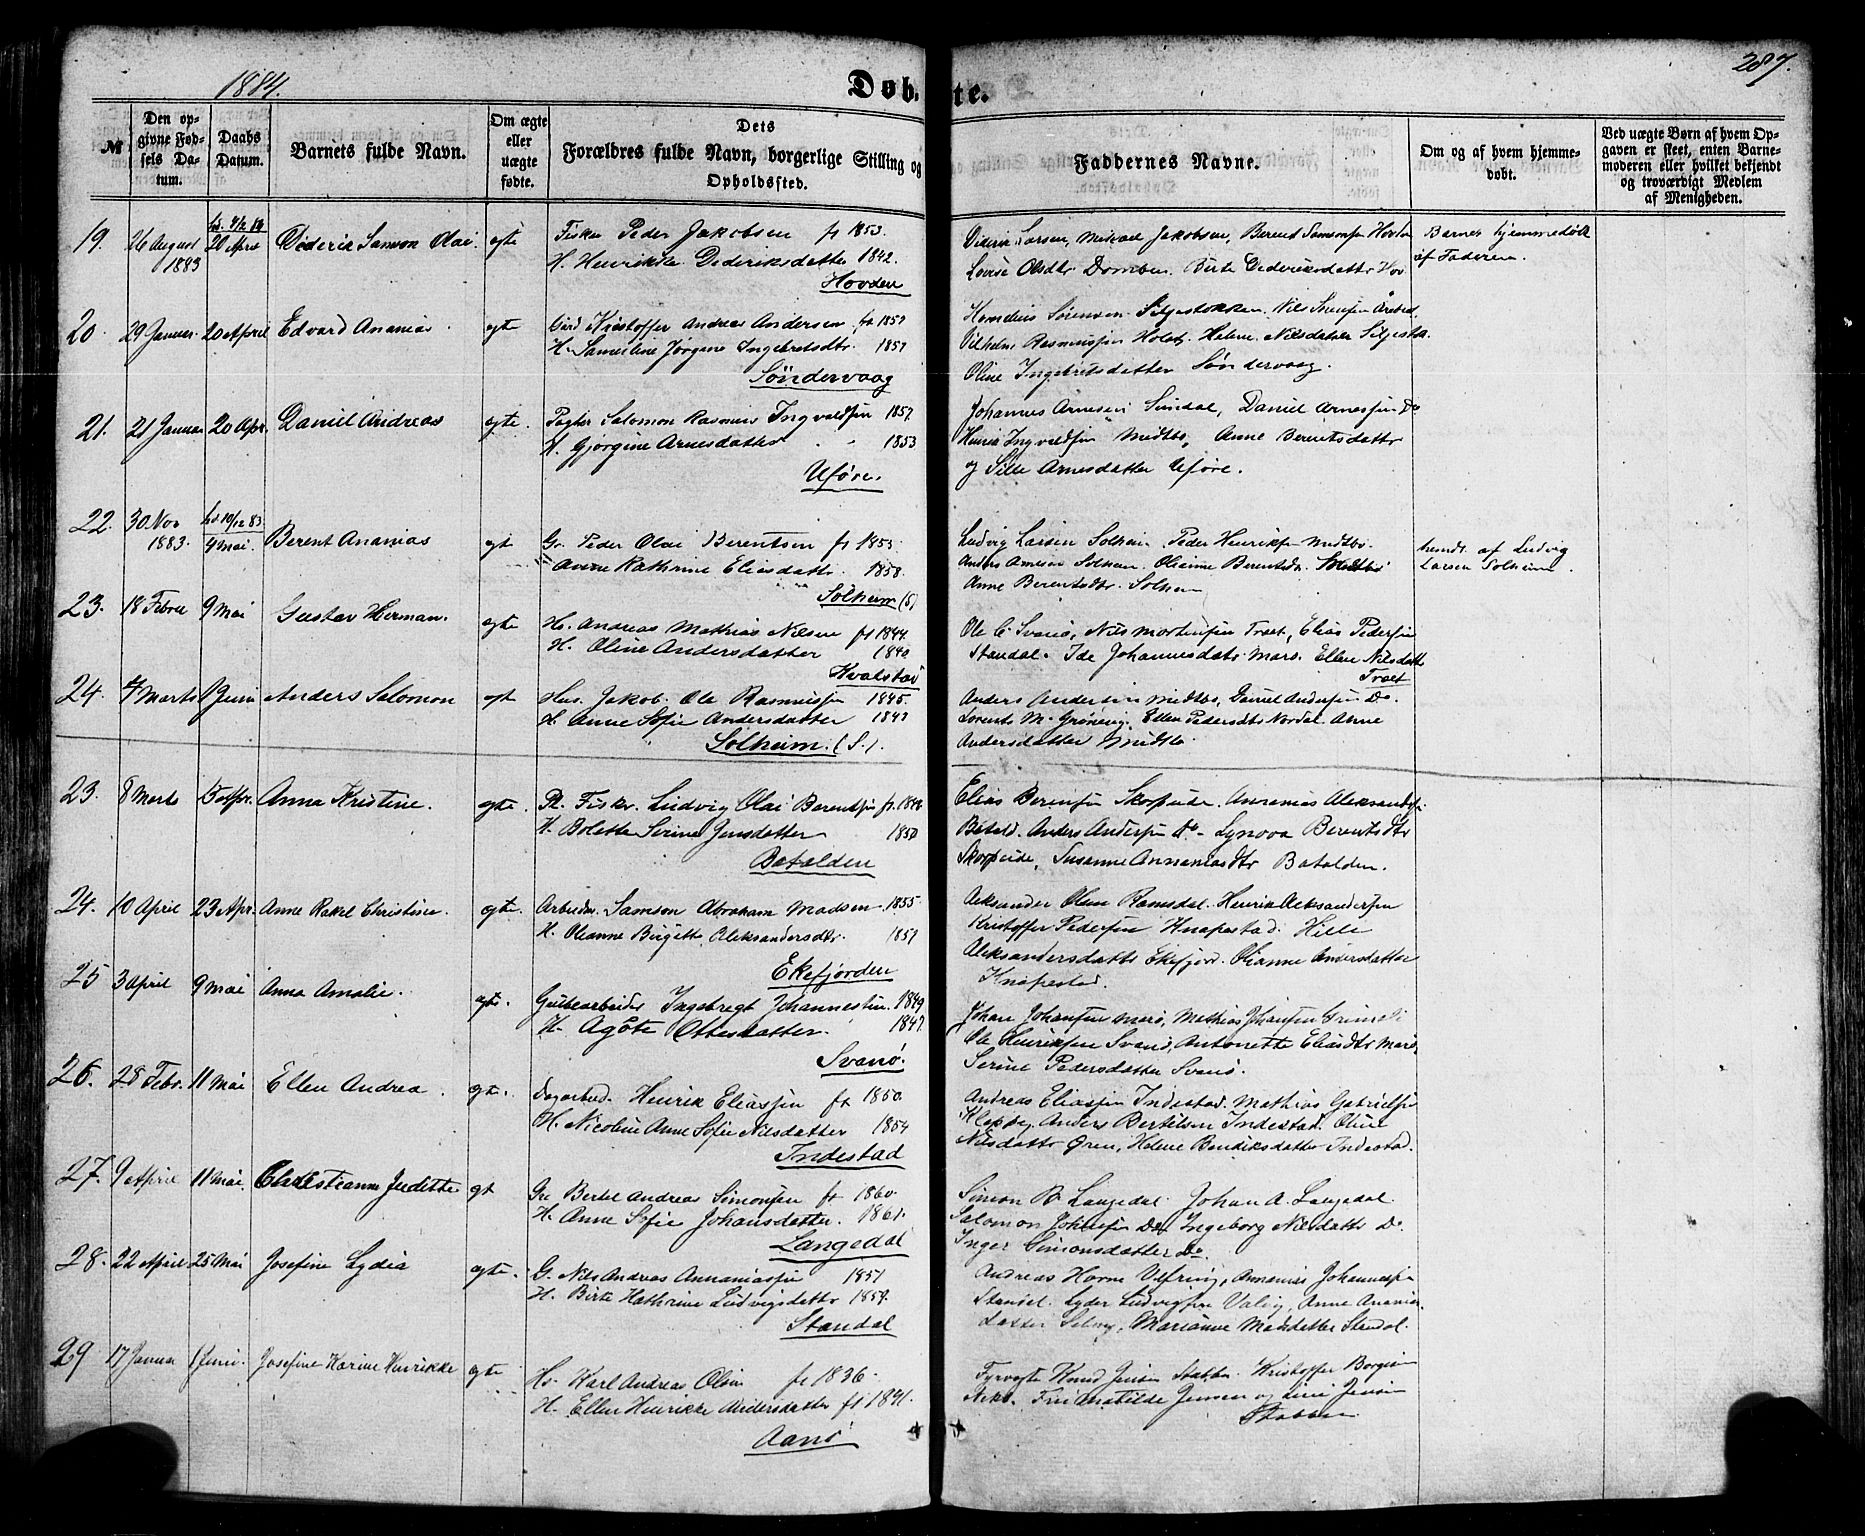 1884.
Døbte.
287.
№
Den opgivne Fødsels Datum.
Daabs Datum.
Barnets fulde Navn.
Om ægte eller uægte fødte.
Dets Forældres fulde Navn, borgerlige Stilling og Opholdssted.
Faddernes Navne.
Om og af hvem hjemmedøbt.
Ved uægte Børn af hvem Opgaven er skeet, enten Barnemoderen eller hvilket bekjendt og troværdigt Medlem af Menigheden.
19. 26 August 1883 20 April Dederik Samson Olai. egte
Fisker Peder Jakobsen ft 1853.
H. Henrikke Dederiksdatter 1842.
Hovden
Diderik Larsen, Mikael Jakobsen, Berent Samsonsen Hovden
Lovise Olsdtr Domben. Birte Dederiksdatter Hov
Barnet hjemmedøbt
af Faderen.
20. 29 Januar 20 April Edvard Ananias. egte
Gård Kristoffer Andreas Andersen ft 1857
H. Jørgine Ingebretsdtr. 1857
Søndervaag
Kornelius Sørensen Seljestokken. Nils
Vilhelm Rasmussen Helene Nilsdatter
Oline Ingebretsdatter Søndervaag.
21. 21 Januar 20 Apr. Daniel Andreas egte.
Salomon Rasmus Ingvaldsen 1857
H. Gjørgine Arnesdatter 1853
Uføre.
Johannes Arnesen Sindal, Daniel Arnessen Do
Henrik Ingvaldsen Midtbø, Anne Berentsdattr
og Sille Arnesdatter Uføre.
22. 30 Nov 1883. hd 10/12 83. 4 Mai. Berent Ananias egt
Gr. Peder Olai Berentsen ft 1853.
Anne Kathrine Eliasdatter. 1858.
Solheim (S)
Ludvig Larsen Solheim. Peder Henriksen Midtbø.
Anders Arnesen Solheim. Olianne Berentsdr.
Anne Berentsdtr. Solheim
hemdt af Ludvig
Larsen Solheim.
23. 18 Febru 9 Mai Gustav Herman. egte
H. Andreas Mathias Nilsen ft 1844.
H. Oline Andersdatter 1840
Kvalstad
Ole C. Svanø, Nils Mortensen Træt, Elias Pedersen
Standal. Ide Johannesdatr Marø. Ellen Nilsdatter
Træt
24. 4 Marts 1 Juni Anders Salomon egt
Hus. Jakob Ole Rasmussen 1845.
H. Anne Sofie Andersdatter 1843
Solheim. (S.).
Anders Andersen Midtbø, Daniel Andersen Do.
Lorents M. Grøneng. Ellen Pedersdtr Nordal. Anne
Andersdatter Midtbø.
23. 8 Marts 15 Apr. Anna Kristine. egte.
Pl. Fisker. Ludvig Olai Berentsen ft. 1848
H. Bolette Serine Jensdatter 1850
Batalden
Elias Berensen Skorpeide. Annanias Aleksandersen
Batald. Anders Andersen Do. Synova Berentsdtr
Skorpeide, Susanne Annaniasdtr Batalden.
24. 10 April 23 Apr. Anne Rakel Christine. egte.
Arbeider. Samson Abraham Madsen. 1855
H. Oleanne Birgitte Aleksandersdtr. 1857
Ekefjorden
Aleksander Olsen Ramsdal. Henrik Aleksandersen
Kristoffer Pedersen Knapestad. Hille
Aleksandersdatter Ekefjord. Olianne Andersdatter
Knapestad.
25 3 April 9 Mai Anna Amalie. egte.
Grubearbeider Ingebregt Johannessen. 1849
H. Agåte Ottesdatter. 1847
Svanø.
Johan Johansen Marø, Mathias Johansen Grimeli
Ole Henriksen Svanø, Antonette Eliasdtr Marø,
Serine Pedersdatter Svanø.
26. 28 Febr. 11 Mai Ellen Andrea. egte.
Dagarbeid. Henrik Eliassen ft 1850.
H. Nicoline Anne Sofie Nilsdatter 1854
Indestad
Andreas Eliassen Indestad. Mathias Gabrielsen
Kleppe, Anders Bertelsen Indestad. Oline
Nilsdatter Øren, Helene Bendiksdatter Indestad.
27. 9 April 11 Mai. Christianne Juditte egt
Gr Bertel Andreas Simonsen ft 1860.
H. Anne Sofie Johansdatter. 1861.
Langedal
Simon B. Langedal. Johan A. Langedal.
Salomon Johansen Do. Ingeborg Nilsdatter Do.
Inger Simonsdatter Do.
28. 22 April 25 Mai Josefine Lydia egte.
G. Nils Andreas Annaniassen 1851
H. Birte Kathrine Ludvigsdatter 1857.
Standal
Andreas Horne Vefring, Annanias Johannessen
Standal. Lyder Ludvigsen Valvig, Anne Ananiasdatter
Marianne Madsdatter Standal.
29 17 Januar 1 Juni. Josefine Karine Henrikke egte
Hs. Karl Andreas Olsen ft 1836.
H. Ellen Henrikke Andersdatter ft 1841.
Aanø
Fyrvogte Knud Jensen Stabben. Kristoffer Borgesen
Nekø. Fru Matilde Jensen og Line Jensen
Stabben